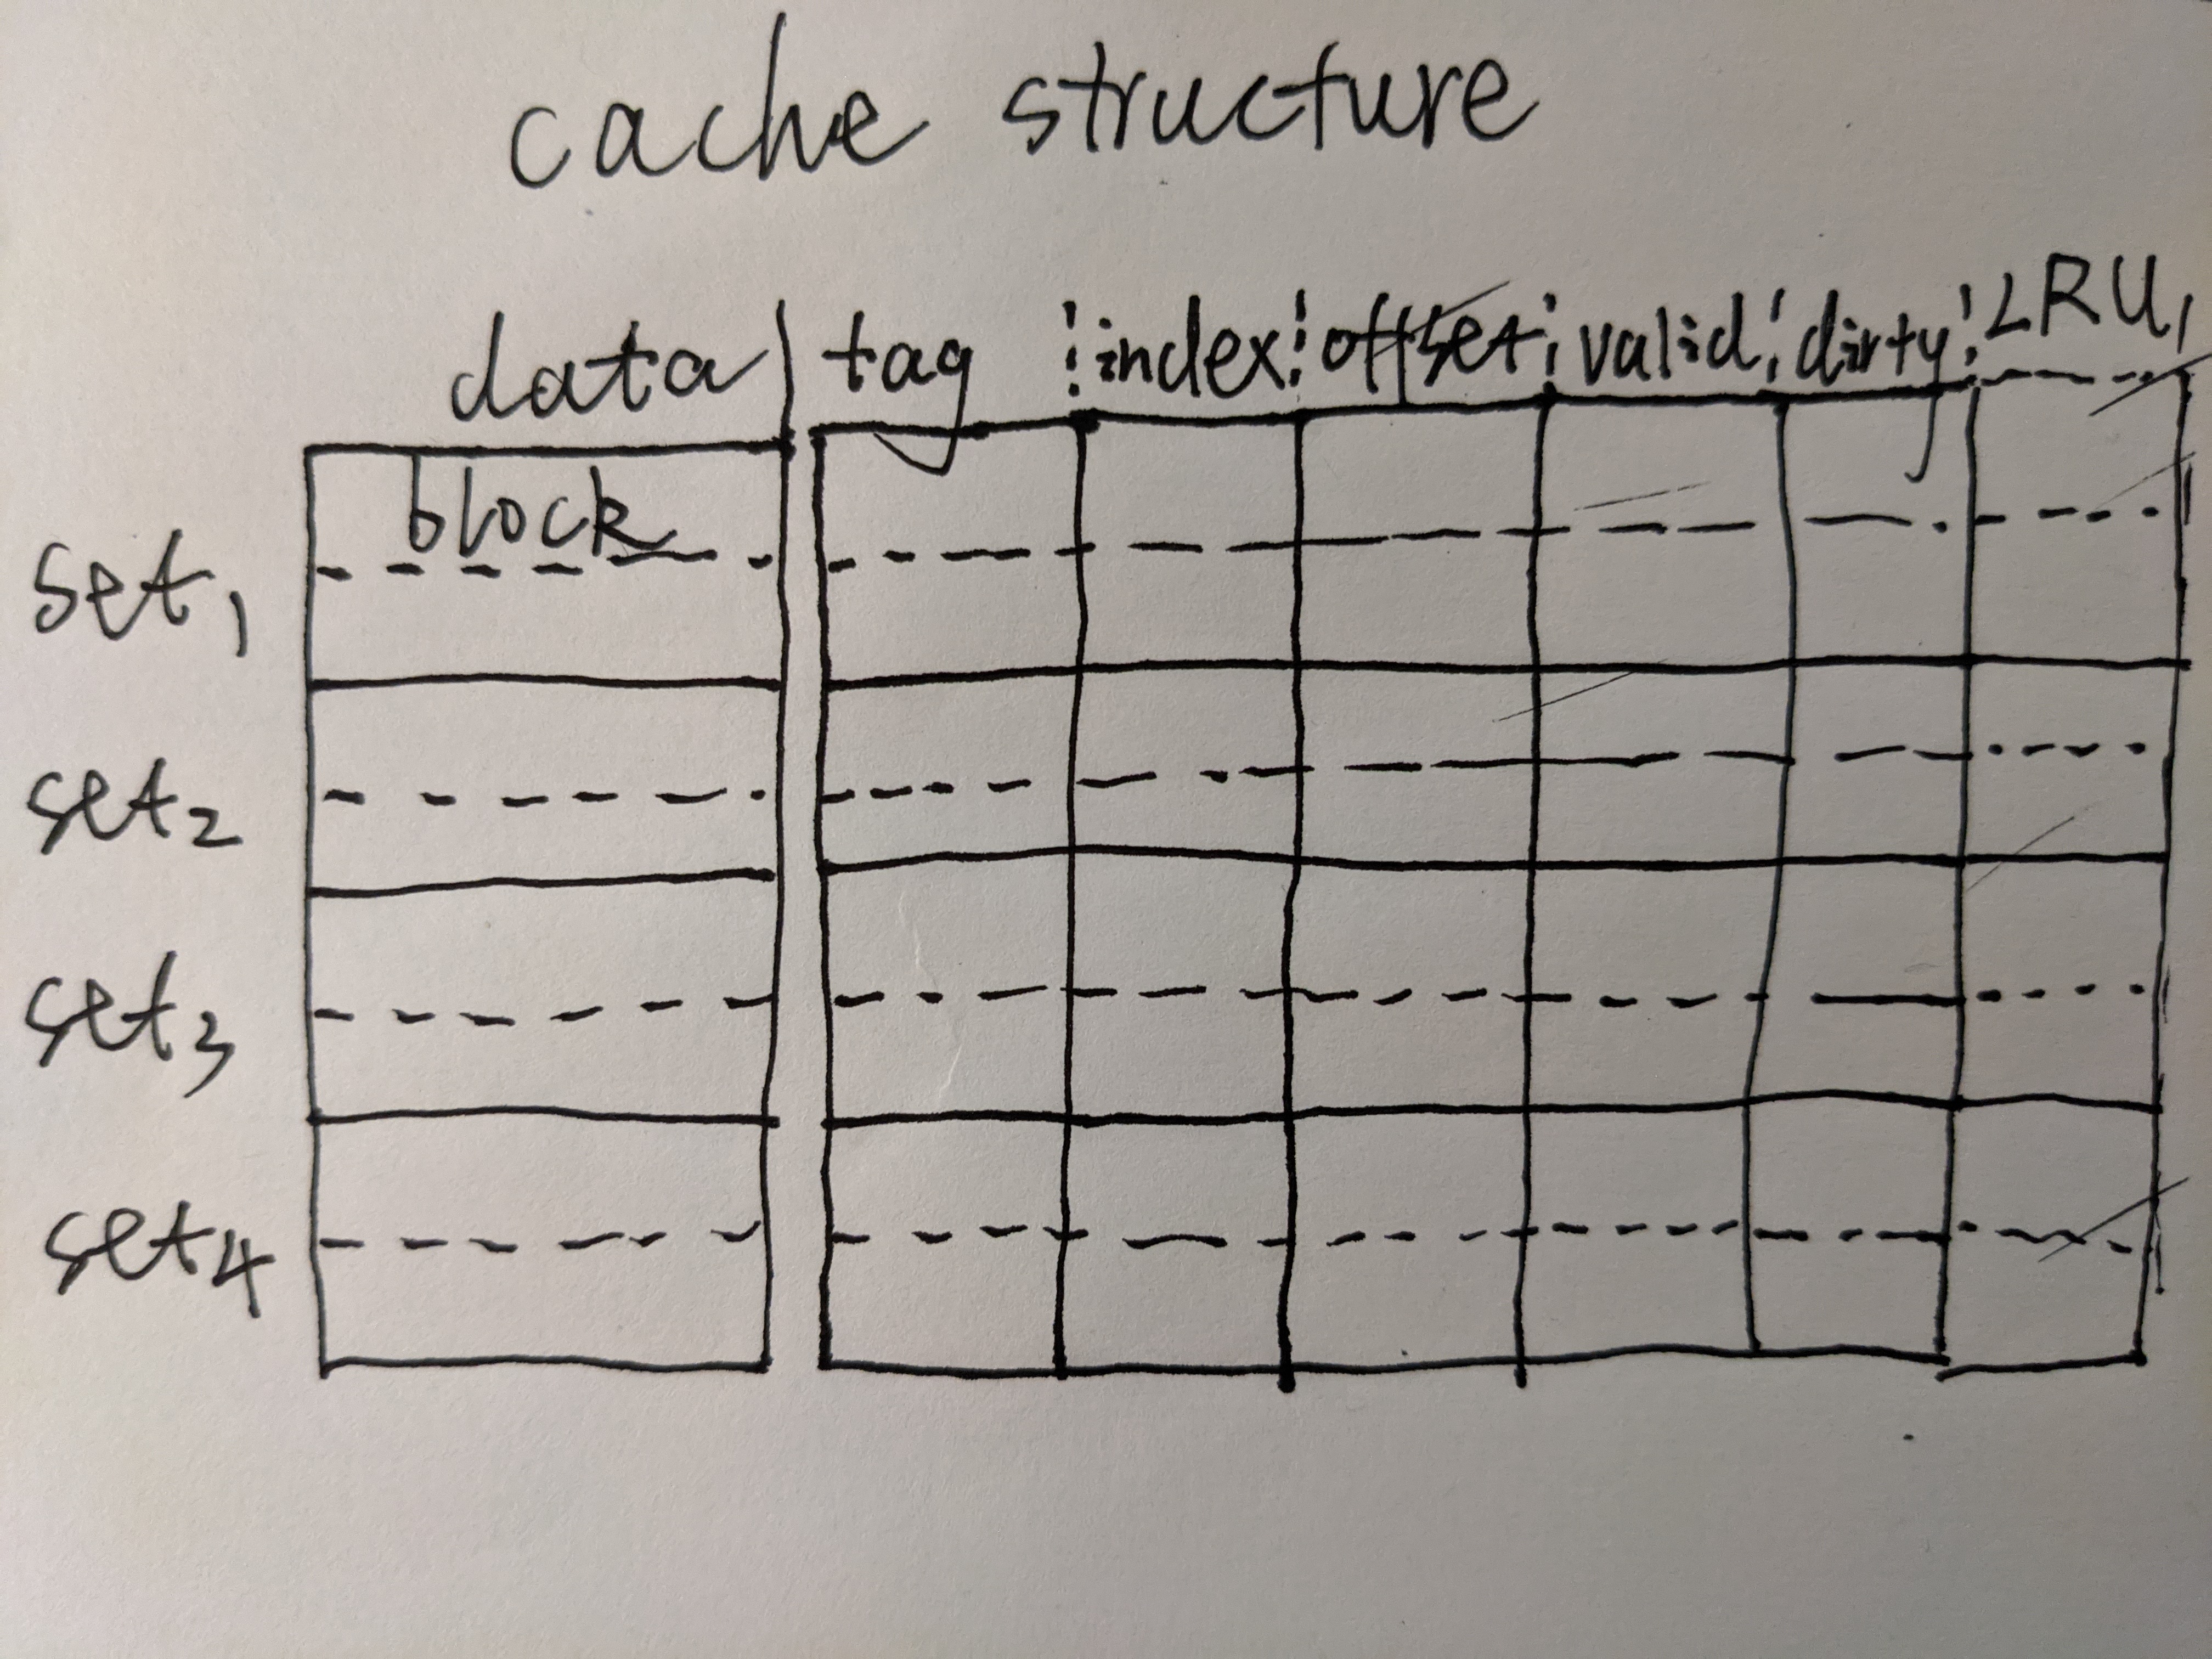 cache structure
data tag index offset valid dirty LRU
block
set1
set2
set3
set4